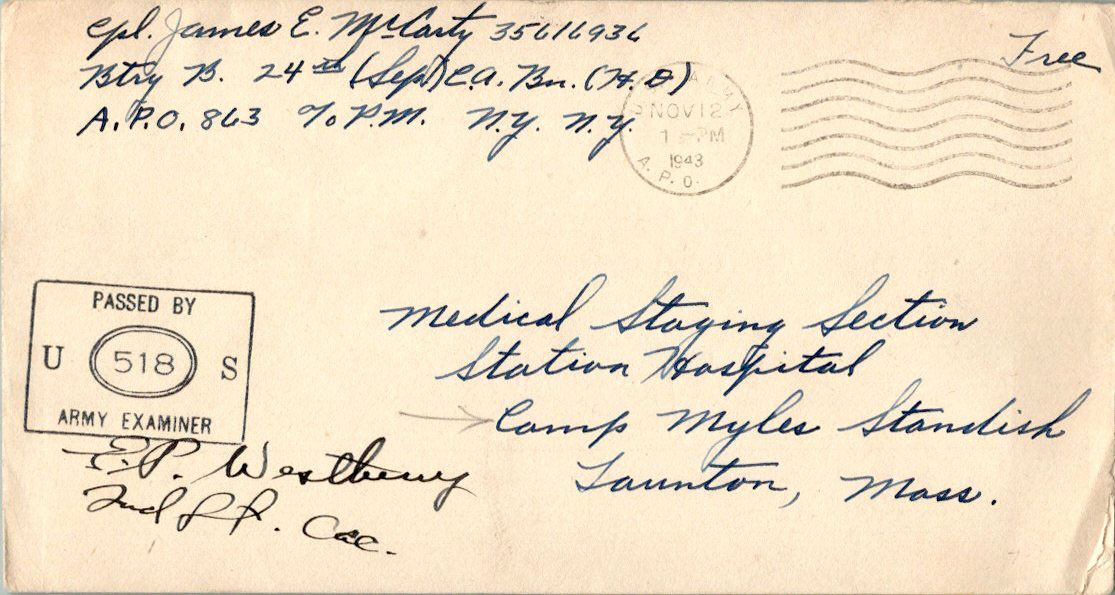 Cpl. James E. McCarty 35616936
Free
Btry B. 24th (Sep) C.A. Bn. (H.D)
A.P.O. 863 c/o P.M. N.Y. N.Y.
ARMY
NOV 12
1 PM
1943
A. P. O.
PASSED BY
U 518 S
ARMY EXAMINER
Medical Staging Section
Station Hospital
Camp Myles Standish
Taunton, Mass.
E.P. Westbury
2nd Lt. Cac.